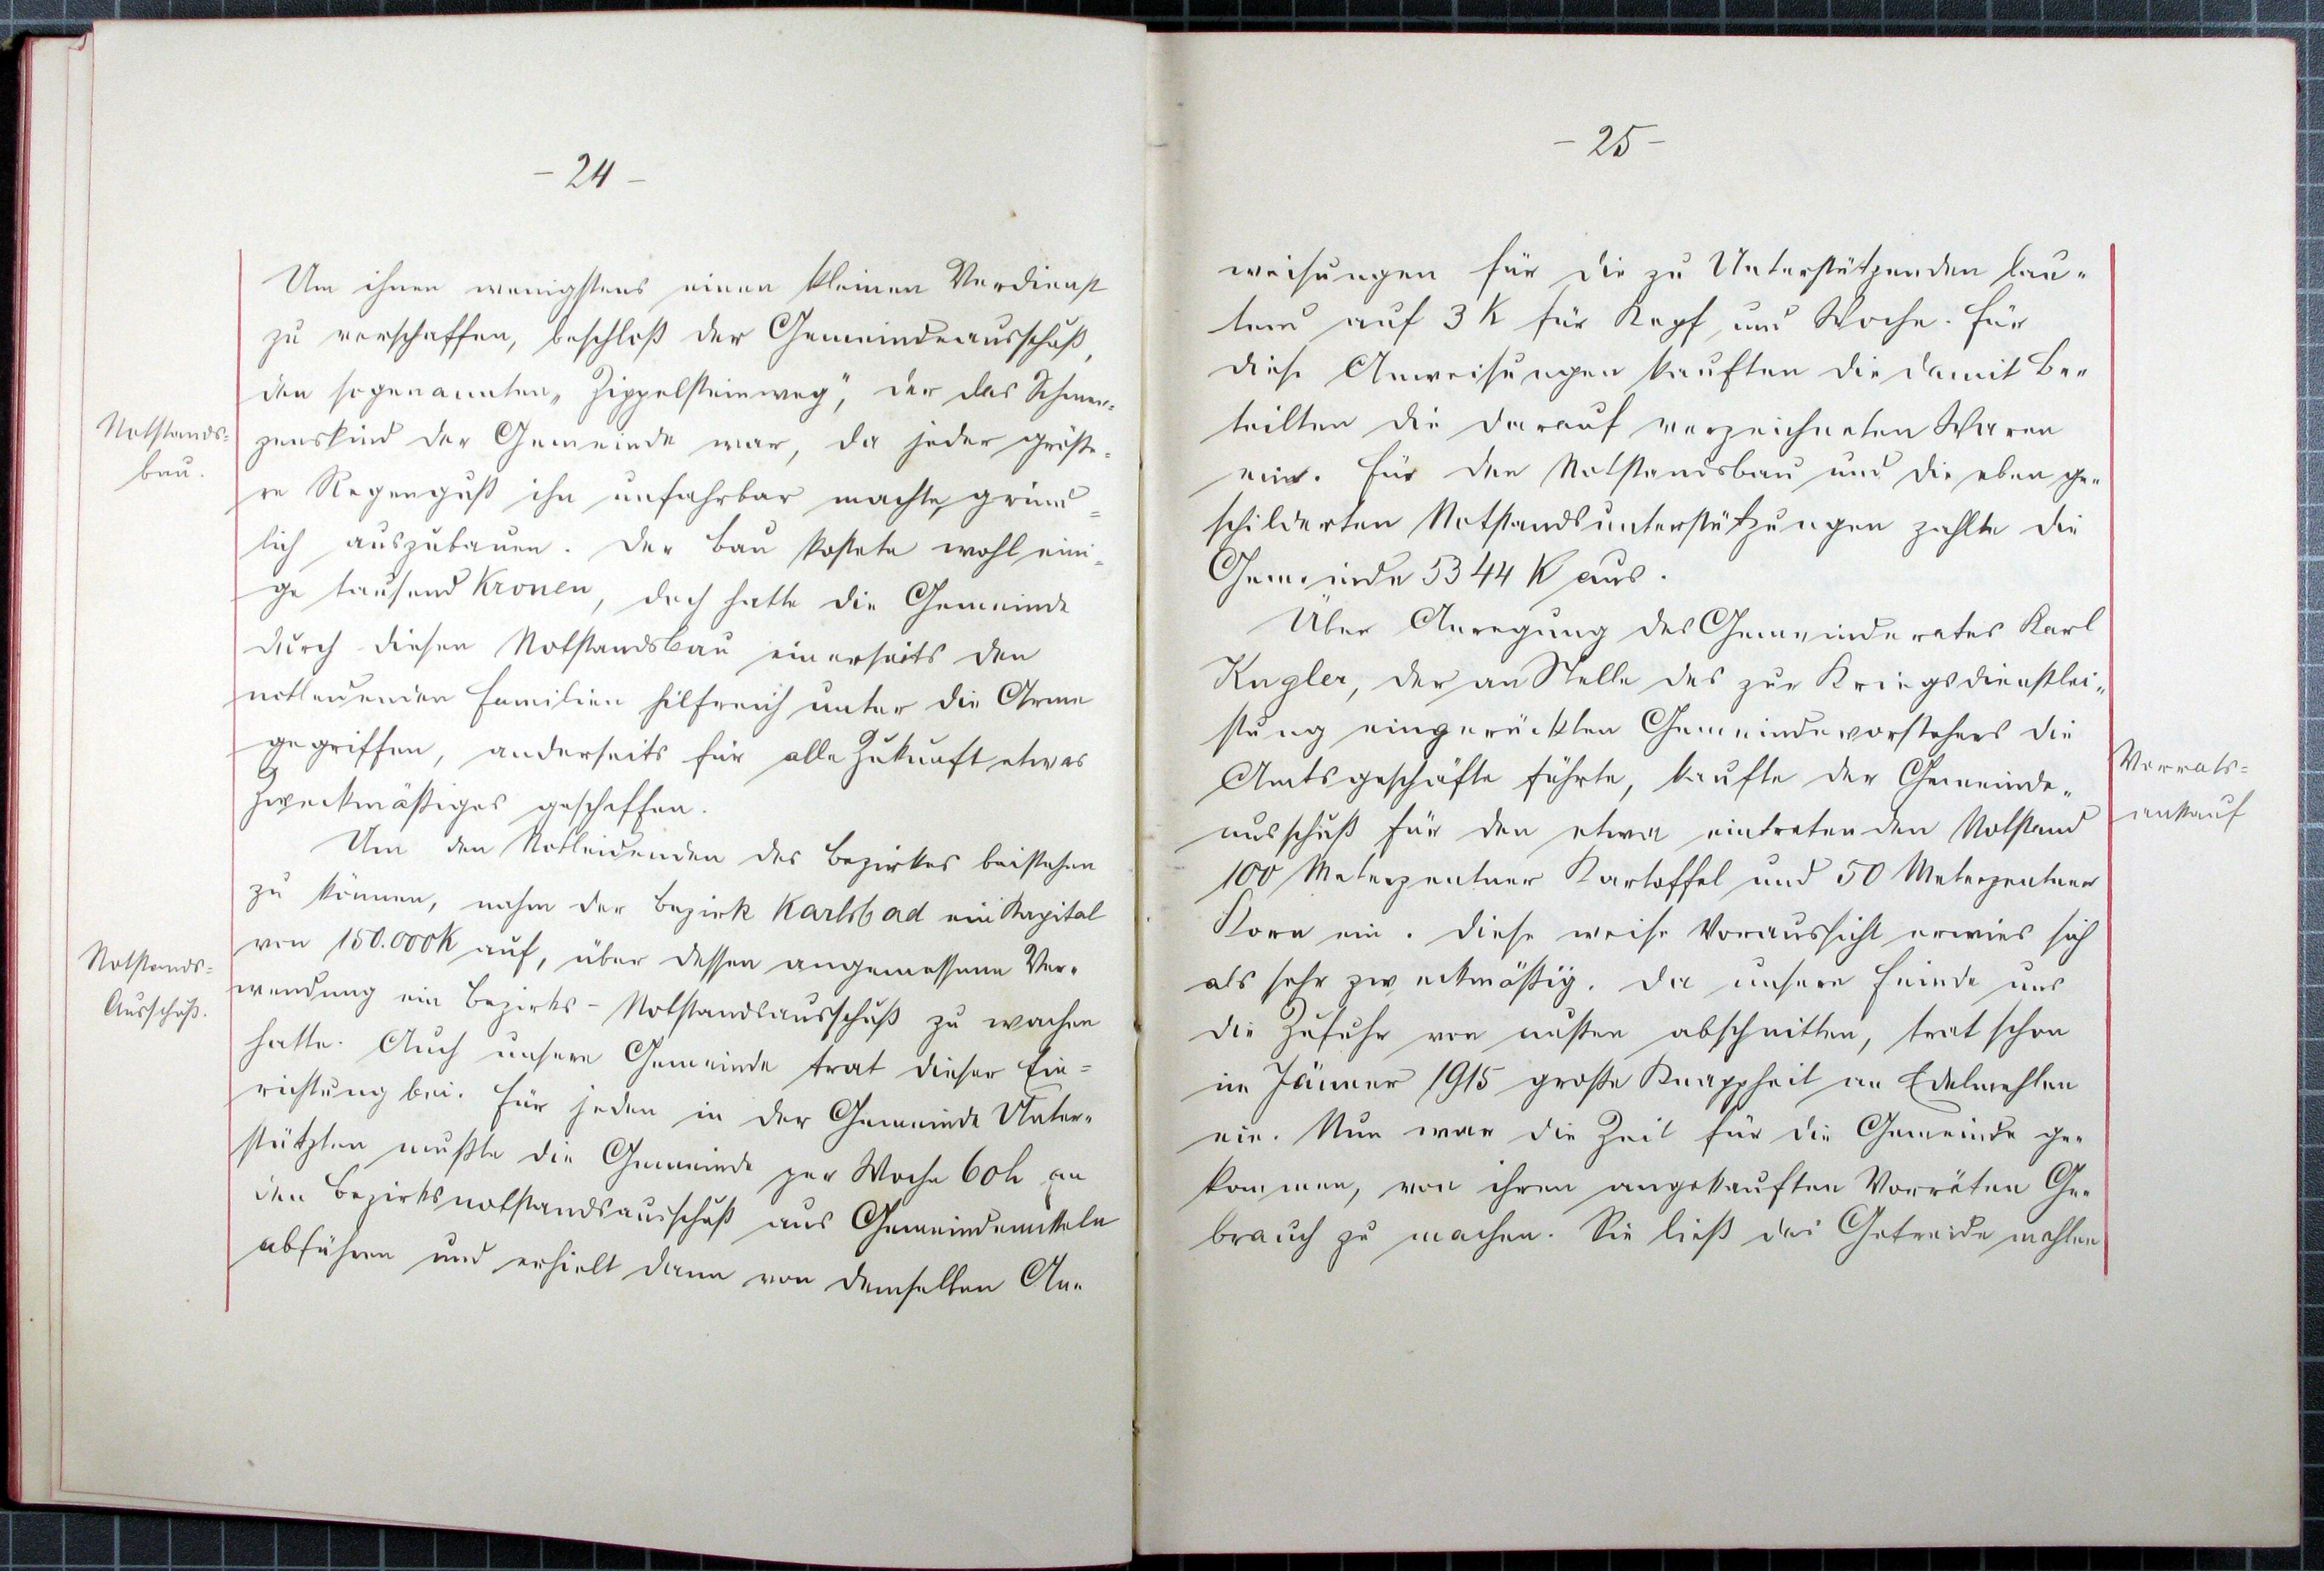 - 24 -
Um ihnen wenigstens einen kleinen Verdienst
zu verschaffen, beschloß der Gemeindeausschuß,
den sogenannten „Zippelsteinweg“, der das Schmer-
Notstands=
bau.
zenskind der Gemeinde war, da jeder größe-
re Regenguß ihn unfahrbar machte, gründ=
lich auszubauen. Der Bau kostete wohl eini-
ge tausend Kronen, doch hatte die Gemeinde
durch diesen Notstandsbau einerseits den
notleidenden Familien hilfreich unter die Arme
gegriffen, anderseits für alle Zukunft etwas
Zweckmäßiges geschaffen.
Um den Notleidenden des Bezirkes beistehen
zu können, nahm der Bezirk Karlsbad ein Kapital
von 150.000K auf, über dessen angemessene Ver-
Notstands=
Ausschuß.
wendung ein Bezirks-Notstandsausschuß zu wachen
hatte. Auch unsere Gemeinde trat dieser Ein=
richtung bei. Für jeden in der Gemeinde Unter-
stützten mußte die Gemeinde per Woche 60h an
den Bezirksnotstandsausschuß aus Gemeindemitteln
abführen und erhielt dann von demselben An-
- 25 -
weisungen für die zu Unterstützenden lau-
tend auf 3 K für Kopf und Woche. Für
diese Anweisungen kauften die damit Be-
teilten die darauf verzeichneten Waren
ein. Für den Notstandsbau und die eben ge-
schilderten Notstandsunterstützungen zahlte die
Gemeinde 5344 K aus.
Über Anregung des Gemeinderates Karl
Kugler, der an Stelle des zur Kriegsdienstlei-
stung eingerückten Gemeindevorstehers die
Amtsgeschäfte führte, kaufte der Gemeinde-
Vorrats=
ankauf
ausschuß für den etwa eintretenden Notstand
100 Meterzentner Kartoffel und 50 Meterzentner
Korn ein. Diese weise Voraussicht erwies sich
als sehr zweckmäßig. Da unsere Feinde uns
die Zufuhr von außen abschnitten, trat schon
im Jänner 1915 große Knappheit an Edelmehlen
ein. Nun war die Zeit für die Gemeinde ge-
kommen, von ihren angekauften Vorräten Ge-
brauch zu machen. Sie ließ das Getreide mahlen